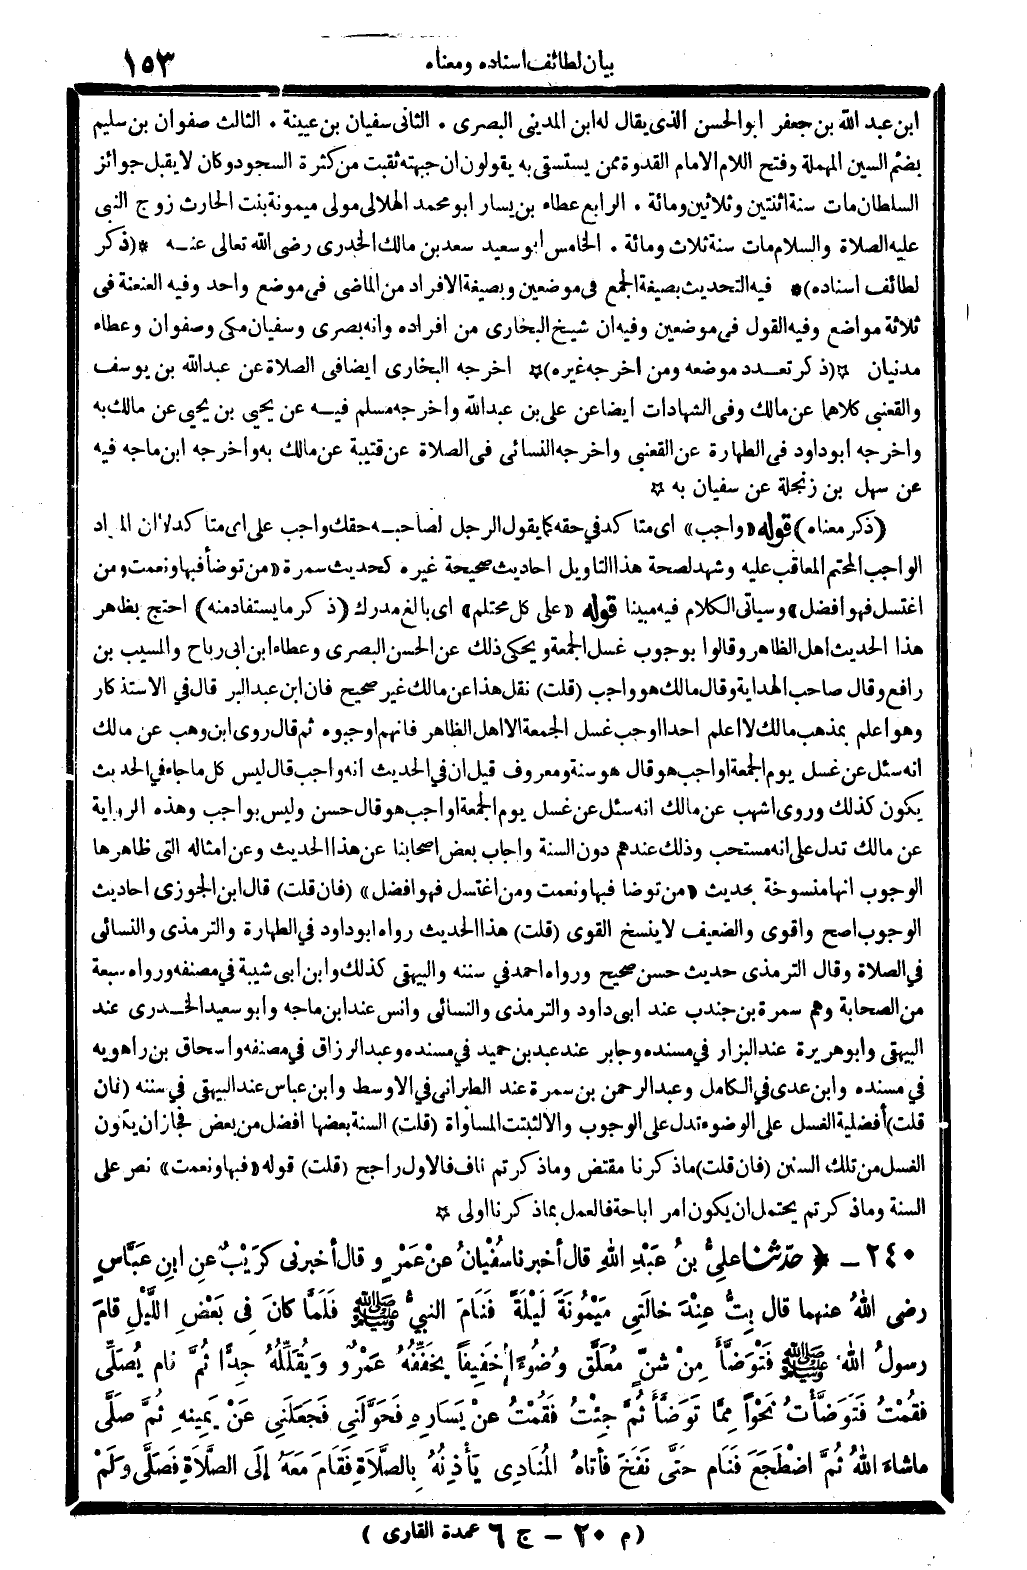 بيان لطائف اسناده ومعناه ١٥٣
ابن عبد الله بن جعفر ابو الحسن الذى يقال له ابن المدينى البصرى . الثانى سفيان بن عيينة . الثالث صفوان بن سليم
بضم السين المهملة وفتح اللام الامام القدوة ممن يستسقى به يقولون ان جبهته ثقبت من كثرة السجود وكان لا يقبل جوائز
السلطان مات سنة اثنتين وثلاثين ومائة . الرابع عطاء بن يسار ابو محمد الهلالى مولى ميمونة بنت الحارث زوج النبى
عليه الصلاة والسلام مات سنة ثلاث ومائة . الخامس أبو سعيد سعد بن مالك الخدرى رضى الله تعالى عنه *(ذكر
لطائف اسناده)* فيه التحديث بصيغة الجمع فى موضعين وبصيغة الافراد من الماضى فى موضع واحد وفيه العنعنة فى
ثلاثة مواضع وفيه القول فى موضعين وفيه ان شيخ البخارى من افراده وانه بصرى وسفيان مكى وصفوان وعطاء
مدنيان ☆(ذكر تعدد موضعه ومن اخرجه غيره)☆ اخرجه البخارى ايضا فى الصلاة عن عبدالله بن يوسف
والقعنبى كلاهما عن مالك وفى الشهادات ايضا عن على بن عبدالله واخرجه مسلم فيه عن يحيى بن يحيى عن مالك به
واخرجه أبو داود فى الطهارة عن القعنبى واخرجه النسائى فى الصلاة عن قتيبة عن مالك به واخرجه ابن ماجه فيه
عن سهل بن زنجلة عن سفيان به ☆
(ذكر معناه) قوله «واجب» اى متاكد فى حقه كما يقول الرجل لصاحبه حقك واجب على اى متاكد لا ان المراد
الواجب المحتم المعاقب عليه وشهد لصحة هذا التاويل احاديث صحيحة غيره كحديث سمرة «من توضأ فبها ونعمت ومن
اغتسل فهو افضل» وسياتى الكلام فيه مبينا قوله «على كل محتلم» اى بالغ مدرك (ذكر ما يستفاد منه) احتج بظاهر
هذا الحديث اهل الظاهر وقالوا بوجوب غسل الجمعة ويحكى ذلك عن الحسن البصرى وعطاء ابن ابى رباح والمسيب بن
رافع وقال صاحب الهداية وقال مالك هو واجب (قلت) نقل هذا عن مالك غير صحيح فان ابن عبد البر قال فى الاستذكار
وهو اعلم بمذهب مالك لا اعلم احدا اوجب غسل الجمعة الا اهل الظاهر فانهم اوجبوه ثم قال روى ابن وهب عن مالك
انه سئل عن غسل يوم الجمعة اواجب هو قال هو سنة ومعروف قيل ان فى الحديث انه واجب قال ليس كل ما جاء فى الحديث
يكون كذلك وروى اشهب عن مالك انه سئل عن غسل يوم الجمعة اواجب هو قال حسن وليس بواجب وهذه الرواية
عن مالك تدل على انه مستحب وذلك عندهم دون السنة واجاب بعض اصحابنا عن هذا الحديث وعن امثاله التى ظاهرها
الوجوب انها منسوخة بحديث «من توضا فبها ونعمت ومن اغتسل فهو افضل» (فان قلت) قال ابن الجوزى احاديث
الوجوب اصح واقوى والضعيف لا ينسخ القوى (قلت) هذا الحديث رواه ابو داود فى الطهارة والترمذى والنسائى
فى الصلاة وقال الترمذى حديث حسن صحيح ورواه احمد فى سننه والبيهقى كذلك وابن ابى شيبة فى مصنفه ورواه سبعة
من الصحابة وهم سمرة بن جندب عند ابى داود والترمذى والنسائى وانس عند ابن ماجه وابو سعيد الخدرى عند
البيهقى وابو هريرة عند البزار فى مسنده وجابر عند عبد بن حميد فى مسنده وعبد الرزاق فى مصنفه واسحاق بن راهويه
فى مسنده وابن عدى فى الكامل وعبد الرحمن بن سمرة عند الطبرانى فى الاوسط وابن عباس عند البيهقى فى سننه (فان
قلت) أفضلية الغسل على الوضوء تدل على الوجوب والا لثبتت المساواة (قلت) السنة بعضها افضل من بعض فجاز ان يكون
الغسل من تلك السنن (فان قلت) ما ذكرنا مقتض وما ذكرتم ناف فالاول راجح (قلت) قوله «فبها ونعمت» نص على
السنة وما ذكرتم يحتمل ان يكون امر اباحة فالعمل بما ذكرنا اولى ☆
٢٤٠ – ﴿ حدّثنا علىُّ بنُ عَبْدِ اللهِ قال أخبرنا سُفْيَانُ عنْ عَمْرٍو قال أخبرنى كرَيْبٌ عنِ ابنِ عَبَّاسٍ
رضى اللهُ عنهما قال بِتُّ عِنْدَ خالَتِى مَيْمُونَةَ لَيْلَةً فَنَامَ النبىُّ ﷺ فَلَمَّا كانَ فِى بَعْضِ اللَّيْلِ قامَ
رسولُ اللهِ ﷺ فَتَوَضَّأَ مِنْ شَنٍّ مُعَلَّقٍ وُضُوءًا خَفِيفاً يخَفِّفُهُ عَمْرٌو وَيُقَلِّلُهُ جِدًّا ثُمَّ نام يُصَلِّى
فَقُمْتُ فَتَوَضَّأْتُ نَحْوًا مِمَّا تَوَضَّأَ ثُمَّ جِئْتُ فَقُمْتُ عنْ يَسَارِهِ فَحَوَّلَنِى فَجَعَلَنِى عَنْ يَمِينِهِ ثُمَّ صَلَّى
ماشاءَ اللهُ ثُمَّ اضْطَجَعَ فَنَام حَتَّى نَفَخَ فأتاهُ المُنَادِى يَأْذِنُهُ بِالصَّلَاةِ فَقَامَ مَعَهُ إلَى الصَّلَاةِ فَصَلَّى ولَمْ
(م ٢٠ – ج ٦ عمدة القارى)